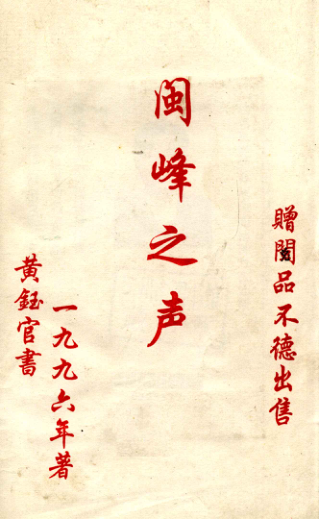 贈閱品不德出售
闽峰之声
一九九六年著
黄鈺官書